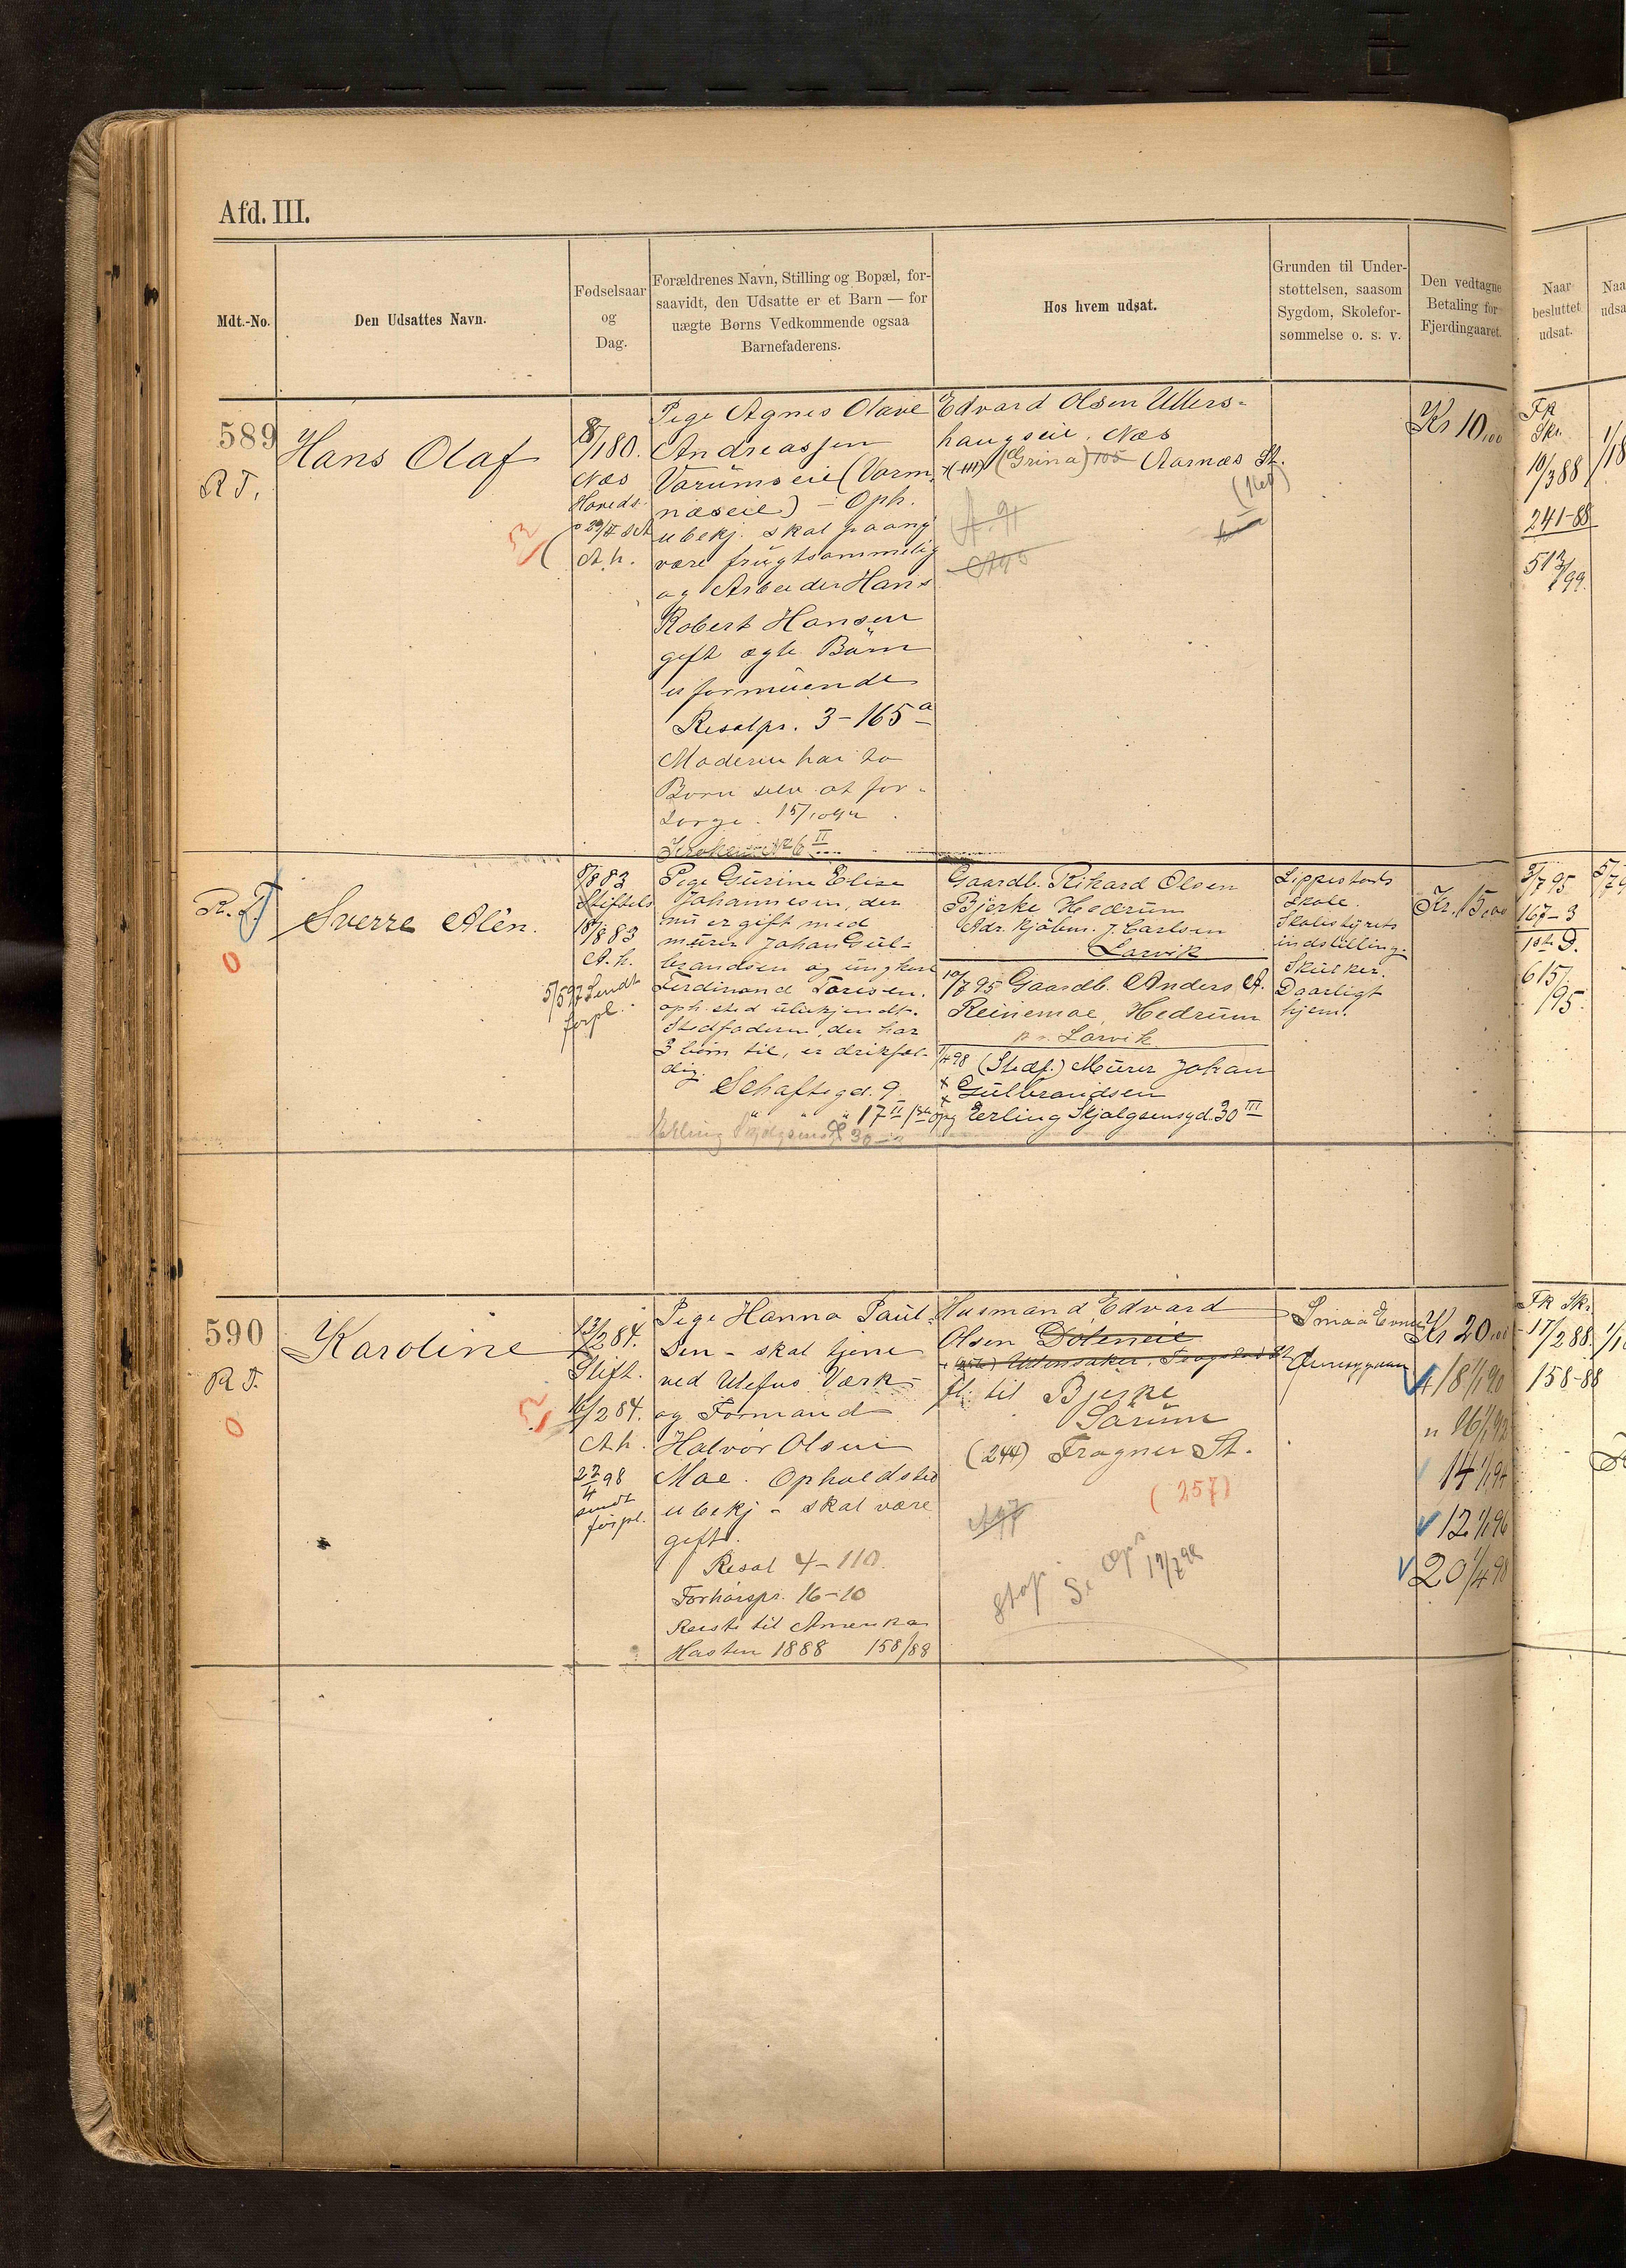 Afd. III.
Mdt.-No.
Den Udsattes Navn.
Fødselsaar
og
Dag.
Forældrenes Navn, Stilling og Bopæl, for-
saavidt, den Udsatte er et Barn — for
uægte Børns Vedkommende ogsaa
Barnefaderens.
Hos hvem udsat.
Grunden til Under-
støttelsen, saasom
Sygdom, Skolefor-
sømmelse o. s. v.
Den vedtagne
Betaling for
Fjerdingaaret.
Naar
besluttet
udsat.
Naa
udsa
589
R T.
Hans Olaf
8/1 80.
Næs
Hoveds.
A. h.
Pige Agnes Olave
Andreassen
Varümseie (Vorm
næseie) - Oph.
ubekj. skal paany
være frügtsommelig
og Arbeider Hans
Robert Hansen
gift ægte Börn
uformüende
Resolpr. 3-165 a
Moderen har to
Børn selv at for-
sørge.
Edvard Olsen Ullers-
haugseie. Næs
(Grina) 105 Aarnæs St.
A. 91
A95
Kr 10,00
FR
Skr.
10/3 88
241-88
R. T.
0
Sverre Alên.
8/8 83
Stiftels
18/8 83
A. h.
5/5 97 Sendt
forpl.
Pige Gürine Elise
Johannesen, der
nü er gift med
mürer Johan Gül-
brandsen og üngkarl
Ferdinand Larsen.
oph. sted übekjendt.
Stedfaderen, der har
3 børn til, er drikfæl-
dig.
Schaftsgd. 9.
" " " 17 II
Erling Skjalgsensgd 30
Gaardb. Rikard Olsen
Bjerke Hedrüm
Adr. Kjøbm. J. Carlsen
Larvik
10/7 95 Gaardb. Anders A.
Reinemoe, Hedrüm
pr. Larvik
1/4 98 (Stedf.) Mürer Johan
Gülbrandsen
Erling Skjalgsensgd. 30 III
Lippestads
Skole.
Skolestyrets
indstilling.
Skülker.
Daarligt
hjem.
Kr. 15,00
3/7 95
167-3
1ste D.
615/95
590
R T.
0
Karoline
13/2 84.
Stift.
16/2 84.
A. h.
22/4 98
sendt
forpl.
Pige Hanna Paul-
sen - skal tjene
ved Ulefos Værk -
og Formand
Halvor Olsen
Moe. Opholdsted
ubekj - skal være
gift.
Resol 4-110.
Forhørspr. 16-10
Reiste til Amerika
Høsten 1888 158/88
Husmand Edvard
Olsen
fl. til Bjerke
Sörüm
(244) Frogner St.
(257)
A97
Stop
Smaa Evner
Kr 20,00
18 1/1 90
" 16 1/1 92
14 1/1 94
12 1/1 96
20 1/4 98
FR Skr.
17/2 88.
158-88